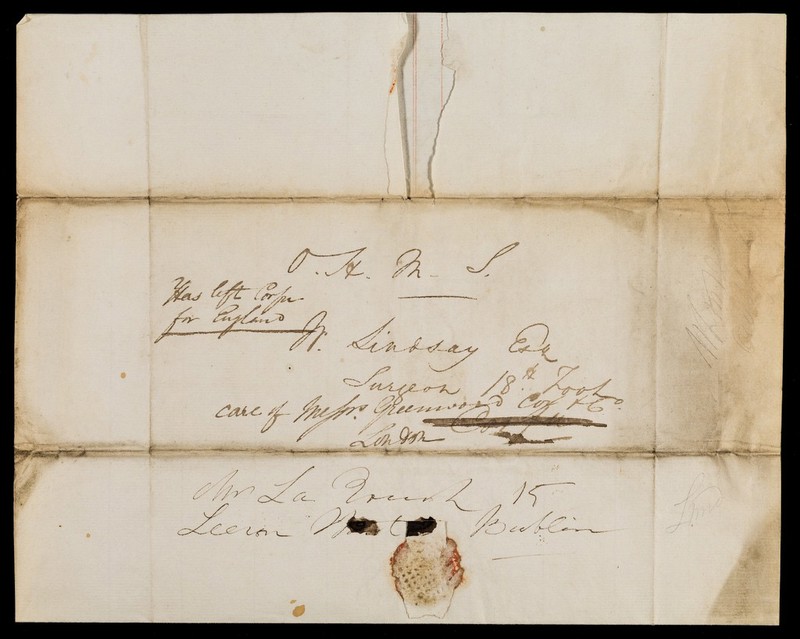 O. H. M. S.
Has left Corfu
for England
W. Lindsay Esq
Surgeon 18th Foot
care of Messrs. Greenwood Cox & Co.
London
Mr La 15
Dublin